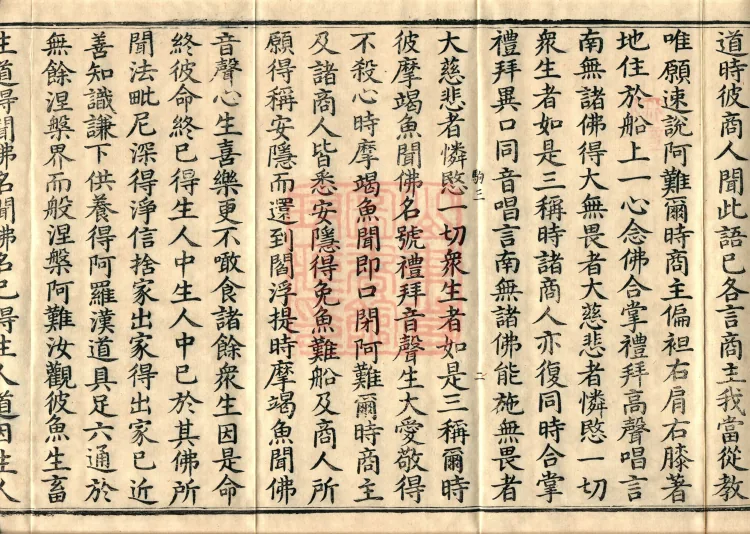 道時彼商人聞此語已各言商主我當從教
唯願速說阿難爾時商主偏袒右肩右膝著
地住於船上一心念佛合掌禮拜高聲唱言
南無諸佛得大無畏者大慈悲者憐愍一切
衆生者如是三稱時諸商人亦復同時合掌
禮拜異口同音唱言南無諸佛能施無畏者
駒三
二
大慈悲者憐愍一切衆生者如是三稱爾時
彼摩竭魚聞佛名號禮拜音聲生大愛敬得
不殺心時摩竭魚聞即口閉阿難爾時商主
及諸商人皆悉安隱得免魚難船及商人所
願得稱安隱而還到閻浮提時摩竭魚聞佛
音聲心生喜樂更不噉食諸餘衆生因是命
終彼命終已得生人中生人中已於其佛所
聞法毗尼深得淨信捨家出家得出家已近
善知識謙下供養得阿羅漢道具足六通於
無餘涅槃界而般涅槃阿難汝觀彼魚生畜
生道得聞佛名聞佛名已得生人道因生人